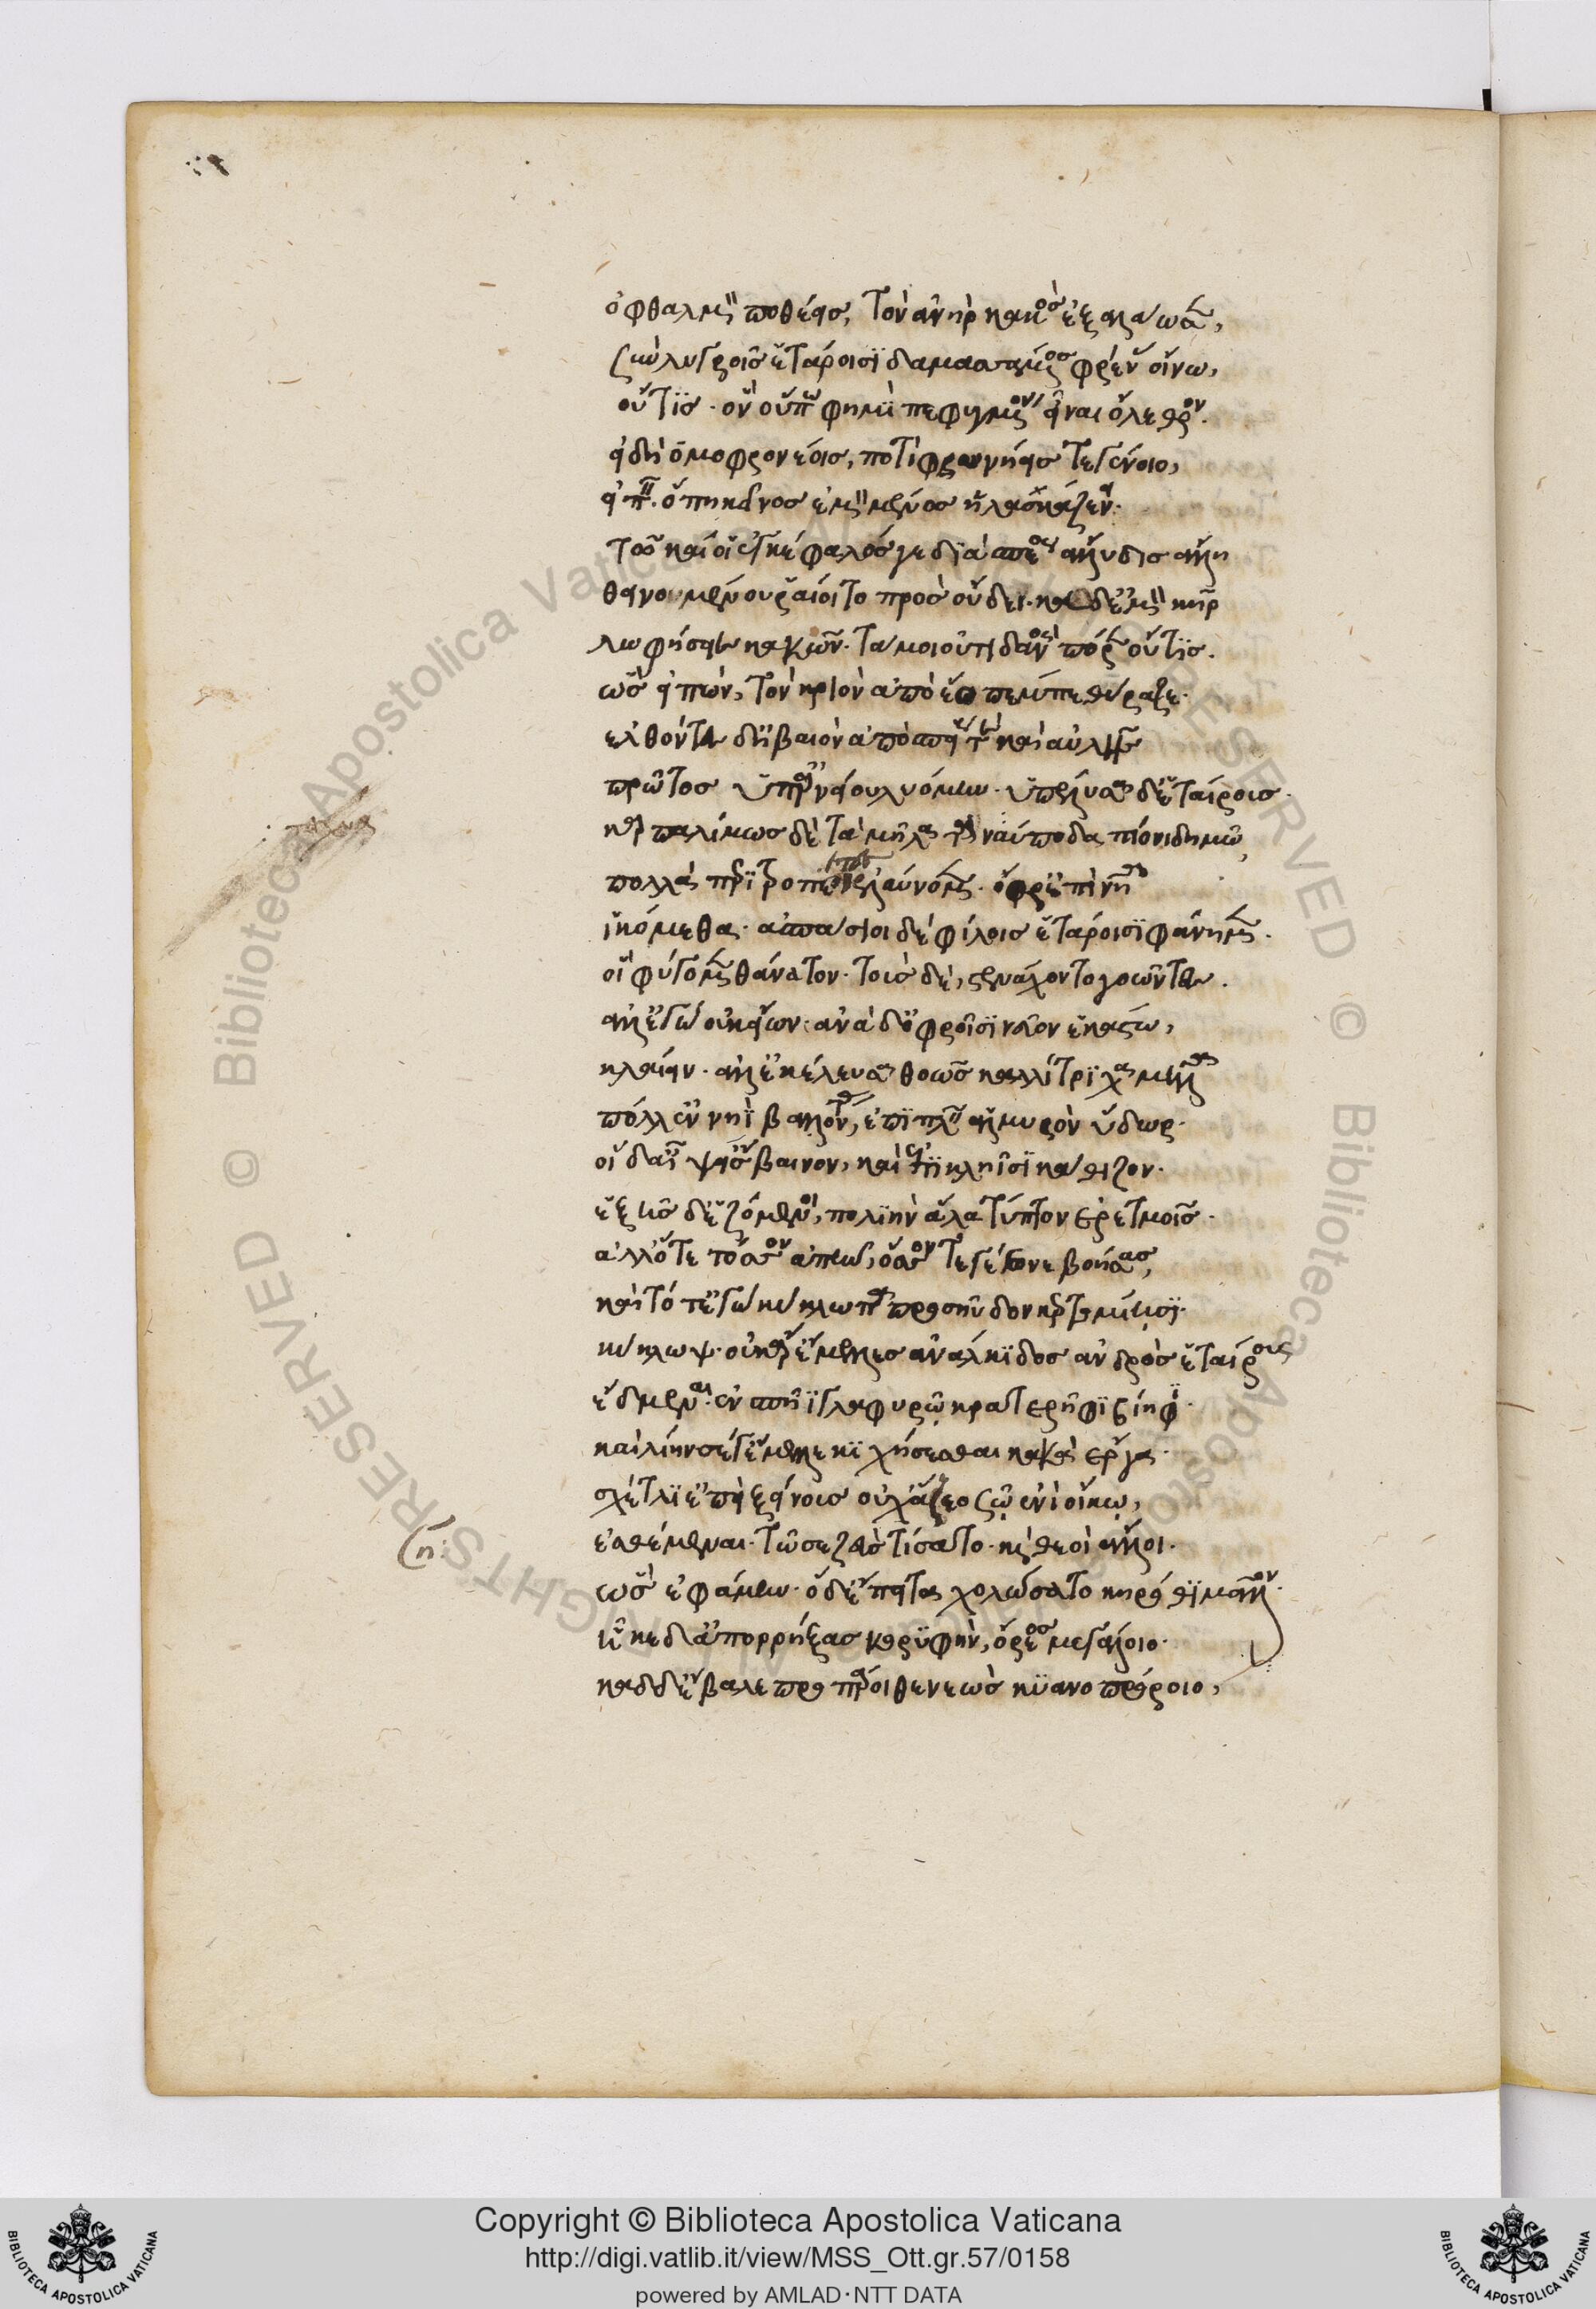 ὀφθαλμὸν ποθέεις, τὸν ἀνὴρ κακὸς ἐξαλάωσε,
σὺν λυγροῖς ἑτάροισι δαμασσάμενος φρένας οἴνω,
οὖτις· ὃν οὔπω φημὶ πεφυγμένον εἶναι ὄλεθρον.
εἰ δὴ ὁμοφρονέοις, ποτιφωνήεις τε γένοιο,
εἰπεῖν ὅππη κεῖνος ἐμὸν μένος ἠλασκάζει.
τῶ καί οἱ ἐγκέφαλός γε διὰ σπέος ἄλλυδις ἄλλη
θεινομένου ῥαίοιτο πρὸς οὔδει. καδ δέ κ' ἐμὸν κῆρ
λωφήσειε κακῶν. τά μοι οὐτιδανὸς πόρεν οὖτις.
ὣς εἰπὼν, τὸν κριὸν ἀπὸ ἕο πέμπε θύραζε.
ἐλθόντες δ' ἠβαιὸν ἀπὸ σπείους τε καὶ αὐλῆς
πρῶτος ὑπ' ἀρνειοῦ λυόμην. ὑπέλυσα δ' ἑταίρους.
καρπαλίμως δὲ τὰ μῆλα ταναύποδα πίονι δημῶ
πολλὰ περιτροπέοντες ἐλαύνομεν. ὄφρ' ἐπὶ νῆα
ἱκόμεθα. ἀσπάσιοι δὲ φίλοις ἑτάροισι φάνημεν.
οἳ φύγομεν θάνατον. τοὺς δὲ, στενάχοντο γοῶντες.
ἀλλ' ἐγὼ οὐκ εἴων. ἀνὰ δ' ὀφρύσι νεῦον ἑκάστω,
κλαίειν. ἀλλ' ἐκέλευσα θοῶς καλλίτριχα μῆλα
πόλλ' ἐν νηῒ βαλόντας, ἐπιπλεῖν ἁλμυρὸν ὕδωρ.
οἱ δ' αἶψ' εἴσβαινον, καὶ ἐπὶ κληῖσι κάθιζον.
ἑξῆς δ' ἑζόμενοι, πολιὴν ἅλα τύπτον ἐρετμοῖς.
ἀλλ' ὅτε τόσσον ἀπῆν, ὅσσον τε γέγωνε βοήσας,
καὶ τότ' ἐγὼ κύκλωπα προσηύδων κερτομίοισι.
κύκλωψ. οὐκ ἄρ' ἔμελλες ἀνάλκιδος ἀνδρὸς ἑταίρους
ἔδμεναι. ἐν σπῆϊ γλαφυρῶ κρατερῆφι βίηφι.
καὶ λίην σέ γ' ἔμελλε κιχήσεσθαι κακὰ ἔργα.
σχέτλι' ἐπεὶ ξείνους οὐχ ἅζεο σῶ ἐνὶ οἴκω,
ἐσθέμεναι. τῶ σε ζεὺς τίσατο. καὶ θεοὶ ἄλλοι.
(η:
ὣς ἐφάμην. ὁ δ' ἔπειτα χολώσατο κηρόθι μᾶλλον.
ἧκε δ' ἀπορρήξας κορυφὴν, ὄρεος μεγάλοιο.
καδ δ' ἔβαλε προπάροιθε νεὼς κυανοπρώροιο,
Copyright © Biblioteca Apostolica Vaticana
http://digi.vatlib.it/view/MSS_Ott.gr.57/0158
powered by AMLAD·NTT DATA